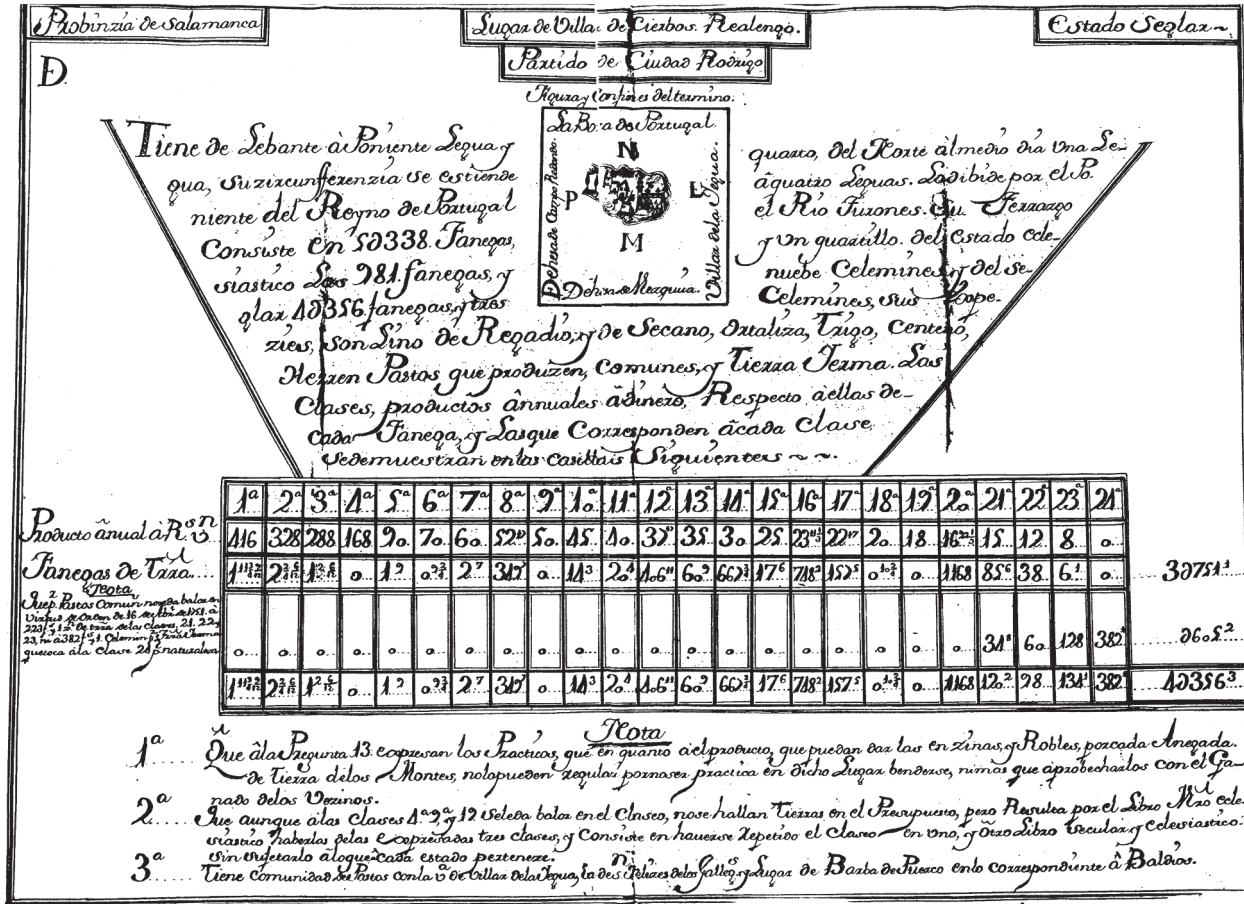 Probinzia de Salamanca
Lugar de Villar de Cierbos. Realengo.
Estado Seglar
Partido de Ciudad Rodrigo
D.
Figura y Confines del termino.
La Raya de Portugal.
N
P
L
M
Dehesa de Campo Redondo.
Villar dela Yegua.
Dehesa de Mezquita.
Tiene de Lebante à Poniente Legua y quarto, del Norte àl medio dia Una Le-
gua, su zircunferenzia se estiende à quatro Leguas. La dibide por el Po-
niente del Reyno de Portugal el Rio Turones. Su Terrazgo
Consiste en 5D338. Fanegas, y Un quartillo. del Estado ecle-
siastico Las 981. fanegas, y nuebe Celemines, y del se-
glar 4D356. fanegas, y tres Celemines, sus Espe-
zies, son Lino de Regadio, y de Secano, Ortaliza, Trigo, Centeno,
Herren Pastos que produzen, comunes, y Tierra Yerma. Las
Clases, productos ânnuales à dinero, Respecto àellas de-
cada Fanega, y Lasque Corresponden àcada Clase
sedemuestran en las casillas Siguientes ~ ~.
1ª 2ª 3ª 4ª 5ª 6ª 7ª 8ª 9ª 10 11ª 12ª 13ª 14ª 15ª 16ª 17ª 18ª 19ª 20 21ª 22ª 23ª 24ª
Producto ânual à Rˢ vⁿ 416 328 288 168 90 70 60 52 50 45 40 37 35 30 25 23 22 20 18 16 15 12 8 0
Fanegas de Trrâ 0 1⁹ 2⁷ 0 14³ 60⁹ 17⁶ 718² 157⁵ 0 1168 85⁶ 38 6¹ 0 3D751¹
Nota
Que pʳ Pastos Comun no seda balor en
Virtud de Orden de 16 de de 1751. à
de trrâ delas Clases, 21. 22 y
23, ni à 382 1. Celemin pʳ Trrâ Yerma
quetoca âla Clase 24 pʳ naturaleza
0 0 0 0 0 0 0 0 0 0 0 0 0 0 0 0 0 0 0 0 34⁸ 60 128 382 D605²
0 1⁹ 2⁷ 0 14³ 60⁹ 17⁶ 718² 157⁵ 0 1168 120² 98 134¹ 382 4D356³
Nota
1ª Que âla Pregunta 13. expresan los Practicos, que en quanto àelproducto, que puedan dar las enzinas, y Robles, por cada Anegada.
de tierra delos Montes, nolo pueden regular por no ser practica en dicho Lugar benderse, ni mas que aprobecharlos con el Ga-
nado delos Vezinos.
2ª Que aunque àlas Clases 4ª 9ª y 19 seleda balor en el Claseo, nose hallan Tierras en el Presupuesto, pero Resulta por el Libro Mrô ecle-
siastico haberlas delas expresadas tres clases, y Consiste en hauerse repetido el Claseo en uno, y otro Libro secular y eclesiastico.
sin sujetarlo âloque âcada estado perteneze.
3ª Tiene comunidad de Pastos con la vª de Villar dela Yegua, la de Sⁿ Felizes delos Gallegˢ, y Lugar de Barba de Puerco en lo correspondiente â Baldios.